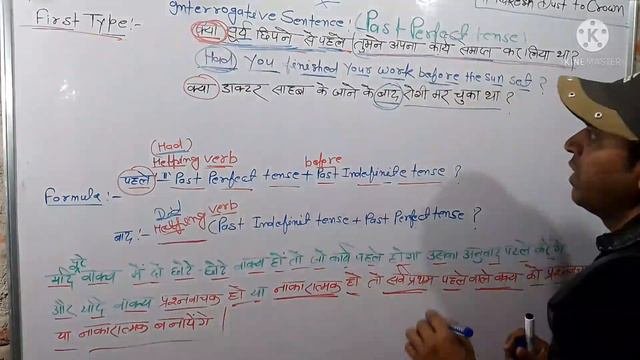 Interrogative Sentence: (Past Perfect tense)
Dust to Crown
First Type:-
क्या सूर्य छिपने से पहले तुमने अपना कार्य समाप्त कर लिया था?
Had you finished your work before the sun set?
KINEMASTER
क्या डाक्टर साहब के जाने के बाद रोगी मर चुका था?
(Had)
Helping verb before
पहले - Past Perfect tense + Past Indefinite tense?
Formula:-
Did
Helping verb
बाद:- (Past Indefinit tense + Past Perfect tense?
यदि वाक्य में दो छोटे छोटे वाक्य हों तो जो कार्य पहले होगा उसका अनुवाद पहले करेंगे
और यदि वाक्य प्रश्नवाचक हो या नाकारात्मक हो तो सर्वप्रथम पहले वाले वाक्य को
या नाकारात्मक बनायेंगे।